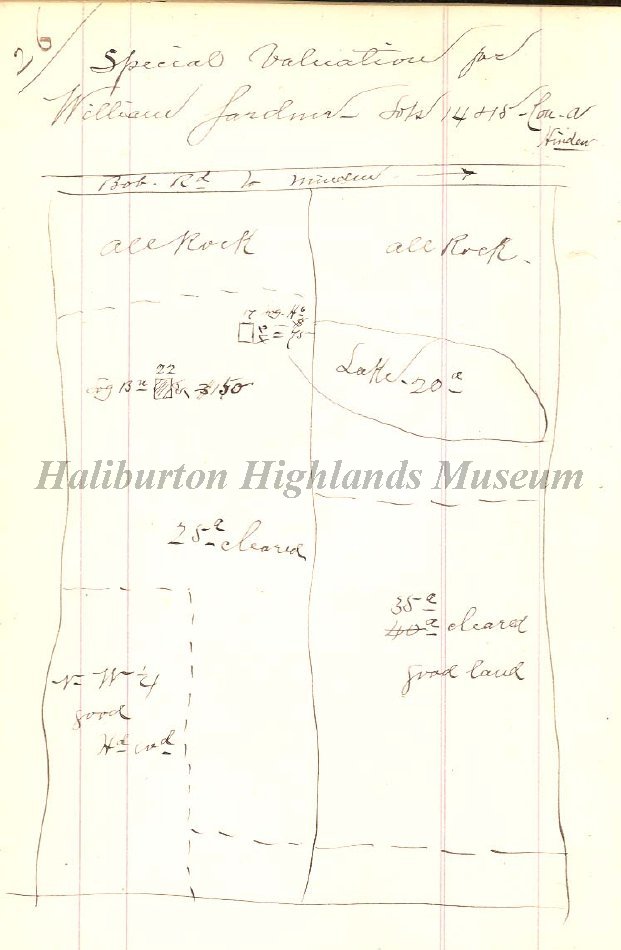 26
Special Valuation for
William Gardner - Lots 14 & 15 - Con - A
Minden
Bob. Rd to Minden
all Rock
all Rock.
= 75
Lake 20 a
22
Log Bn $150
Haliburton Highlands Museum
25 a cleared
35 a
40 a cleared
good land
N W 1/4
good
Hd wd